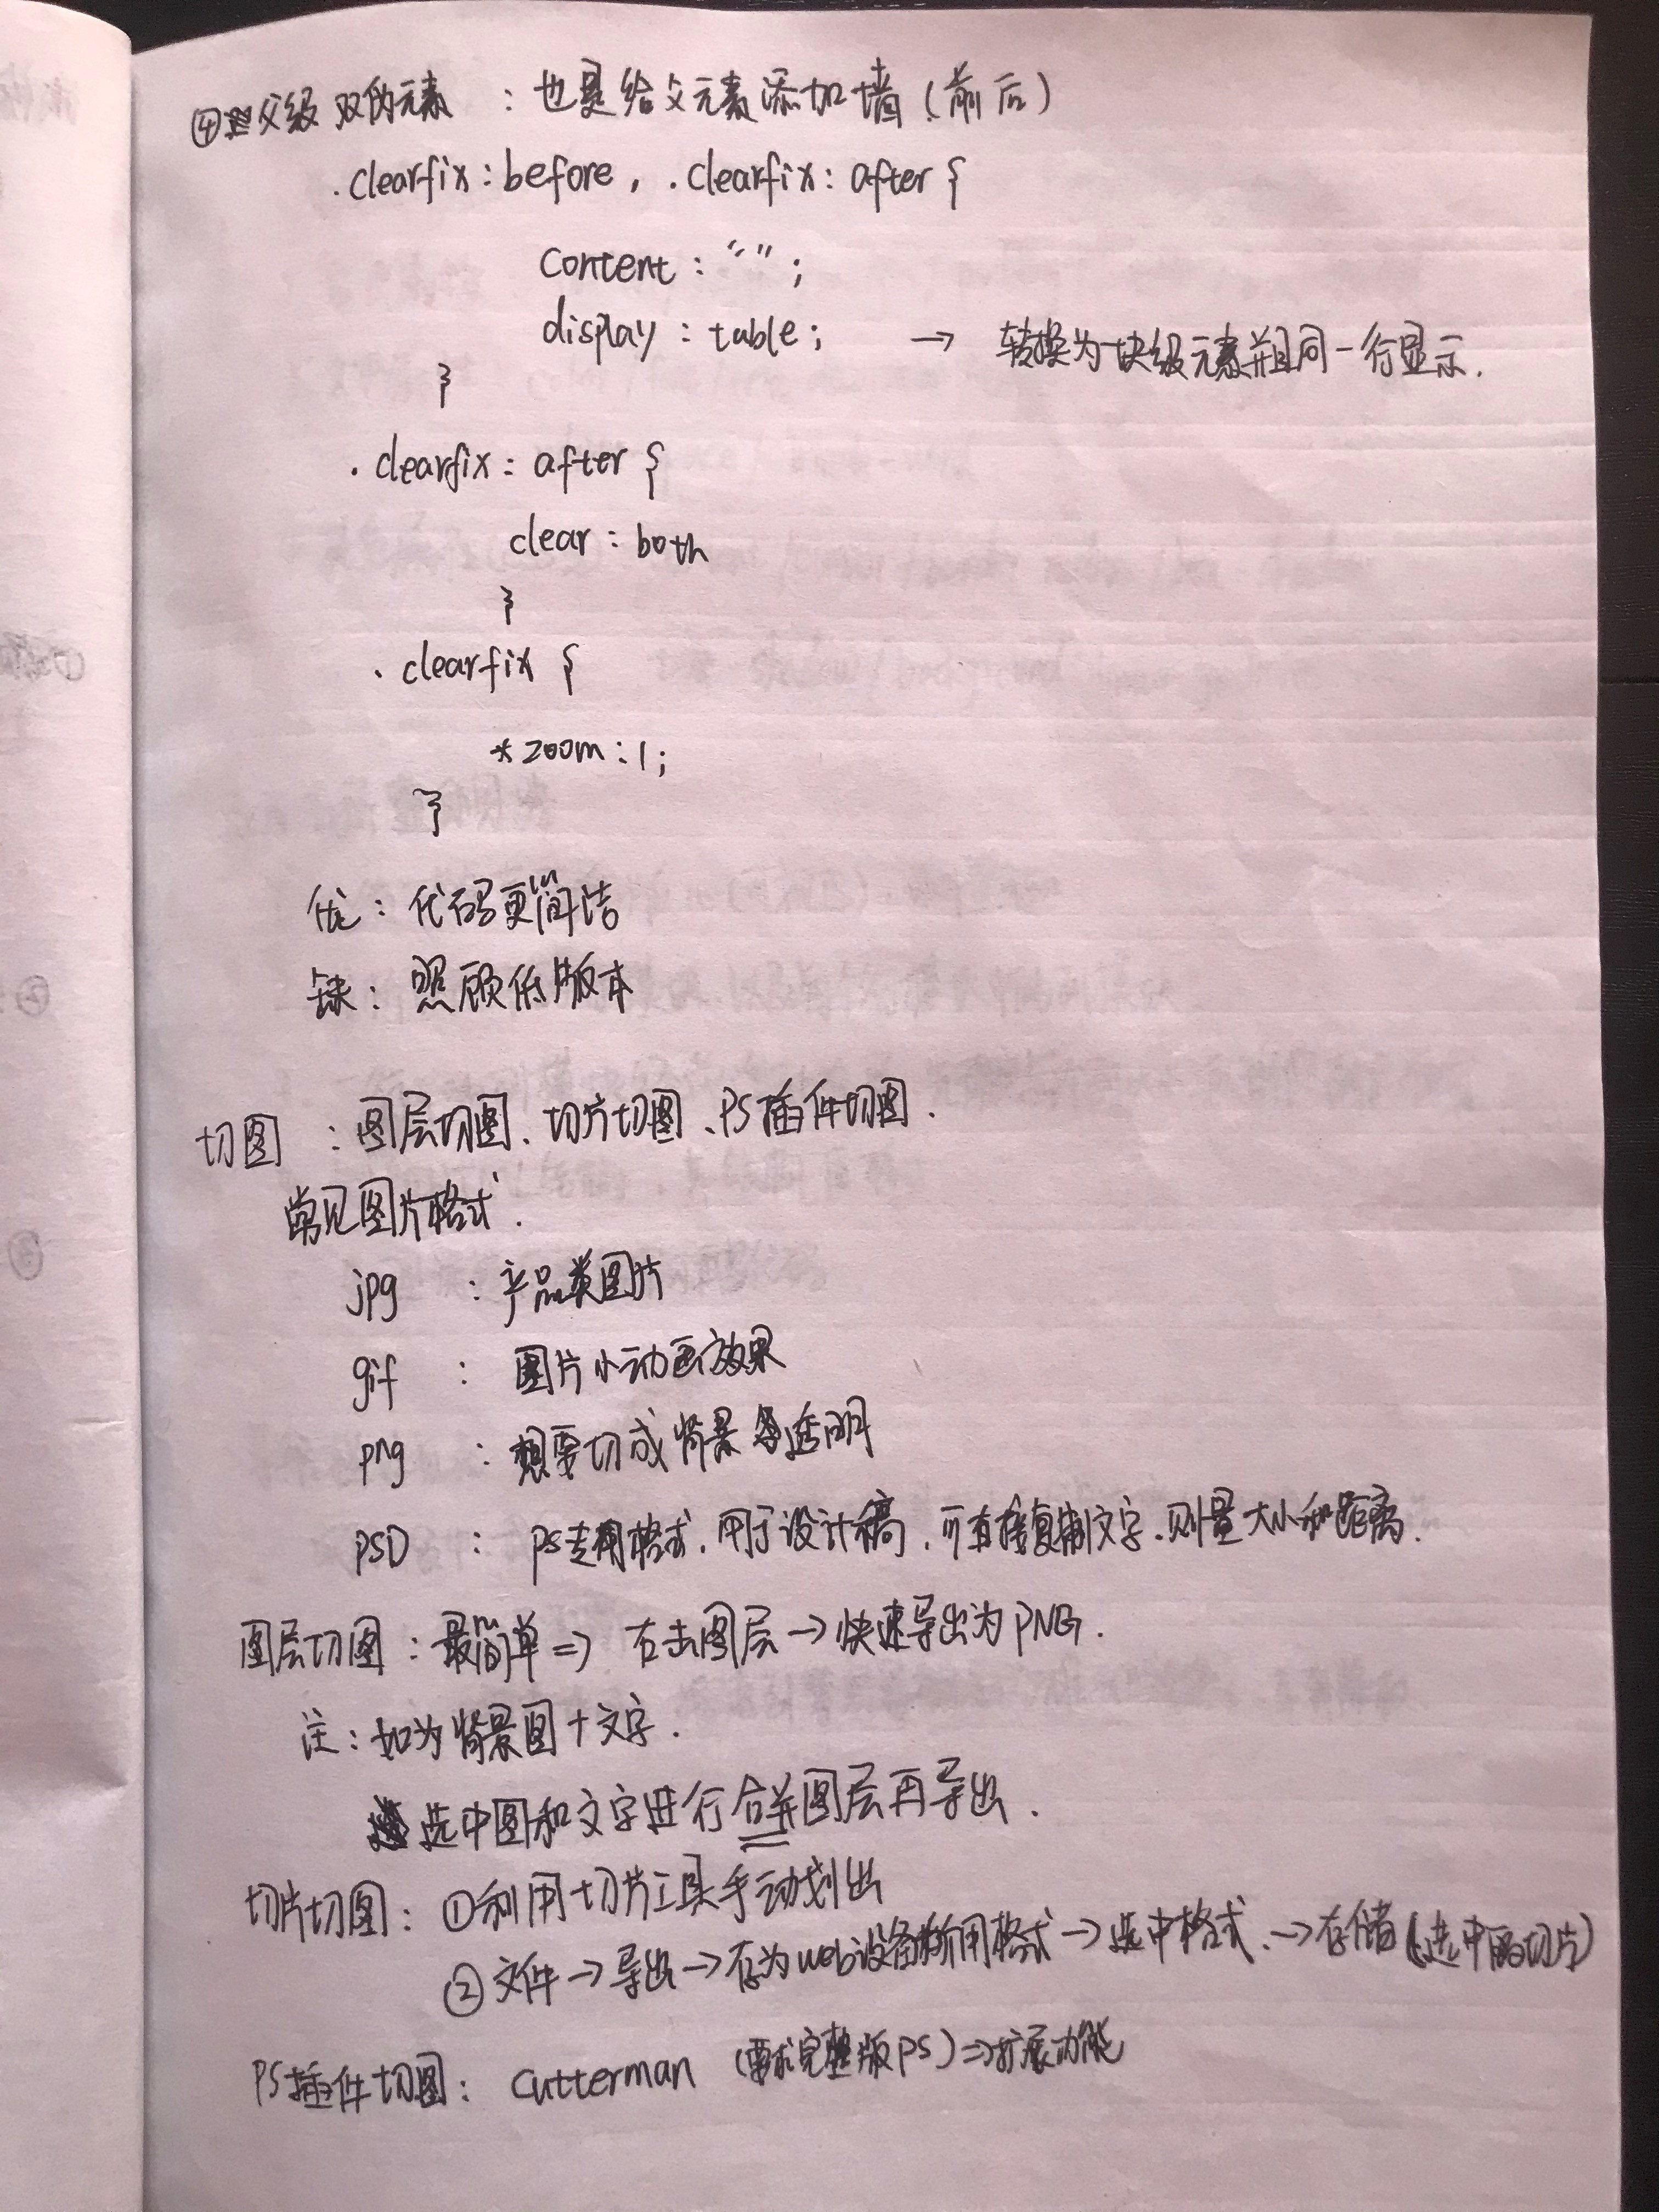 ④父级双伪元素 : 也是给父元素添加墙(前后)
.clearfix:before, .clearfix:after {
content: "";
display: table; → 转换为块级元素并且同一行显示.
}
.clearfix:after {
clear: both
}
.clearfix {
*zoom:1;
}
优: 代码更简洁
缺: 照顾低版本
切图 : 图层切图、切片切图、PS插件切图.
常见图片格式.
jpg : 产品类图片
gif : 图片小动画效果
png : 想要切成背景透明
PSD : PS专用格式,用于设计稿,可直接复制文字.测量大小和距离.
图层切图: 最简单 => 右击图层→快速导出为PNG.
注: 如为背景图+文字.
选中图和文字进行合并图层再导出.
切片切图: ①利用切片工具手动划出
②文件→导出→存为web设备所用格式→选中格式.→存储(选中的切片)
PS插件切图: Cutterman (要求完整版PS)=>扩展功能